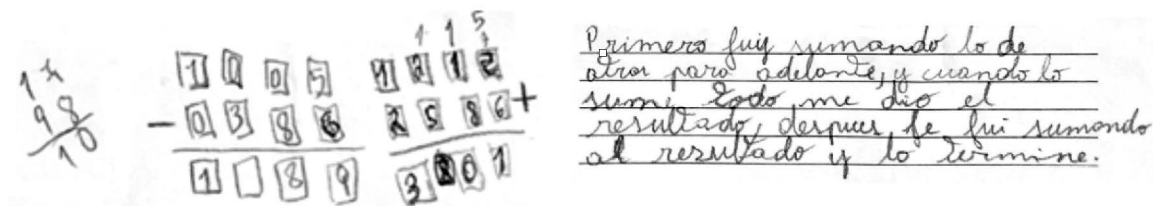 1 1 5
1 4
9 8
1 0
1 0 0 5
- 0 3 8 6
1 8 9
1 2 1 2
2 5 8 6 +
3 8 0 1
Primero fuy sumando lo de
atras para adelante, y cuando lo
sumi todo me dio el
resultado, despues le fui sumando
al resultado y lo termine.